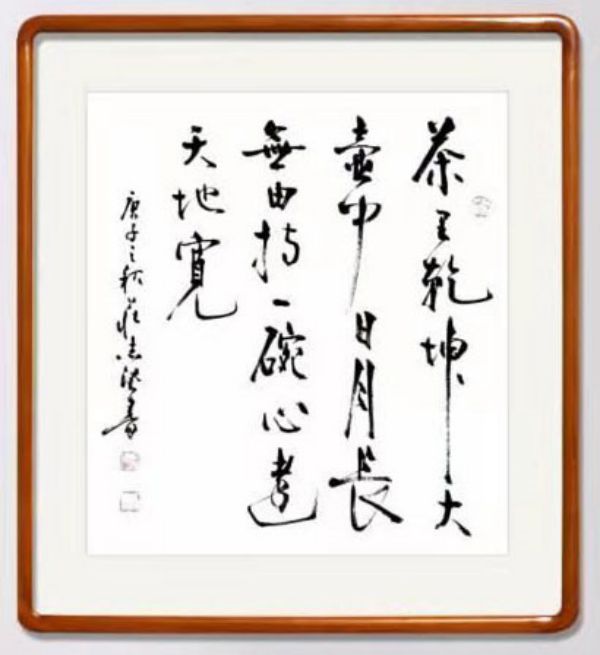 茶里乾坤大
壺中日月長
無由持一碗心遠
天地寬
庚子之秋莊志深書